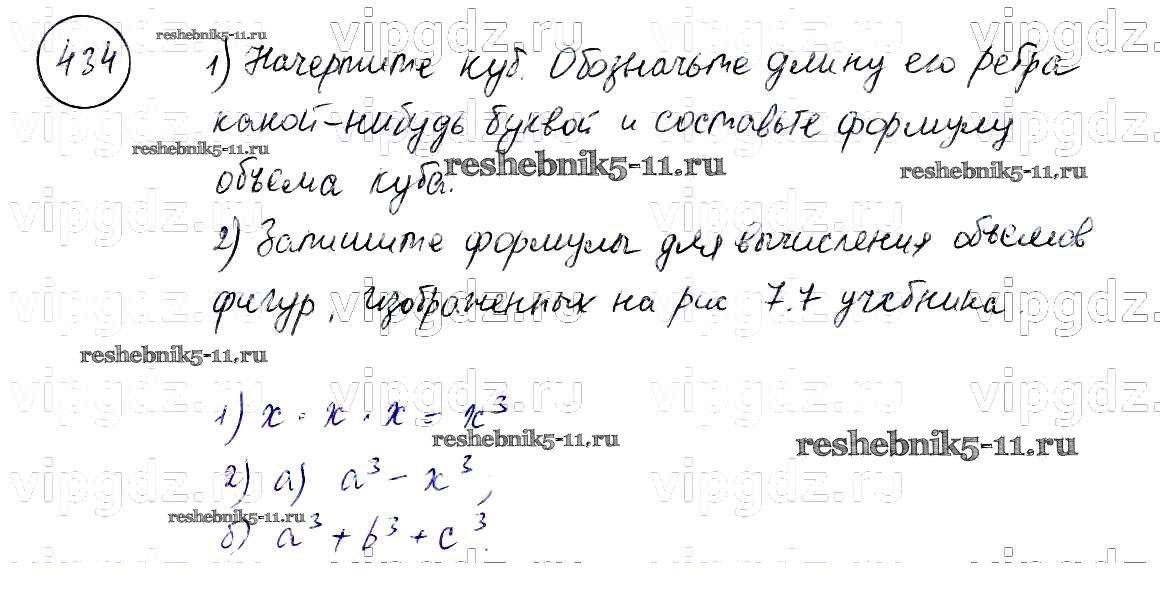 434
1) Начертите куб. Обозначьте длину его ребра
какой-нибудь буквой и составьте формулу
объема куба.
2) Запишите формулы для вычисления объемов
фигур, изображенных на рис 7.7 учебника.
1) x · x · x = x³
2) а) a³ - x³;
б) a³ + b³ + c³.
reshebnik5-11.ru
reshebnik5-11.ru
reshebnik5-11.ru
reshebnik5-11.ru
reshebnik5-11.ru
reshebnik5-11.ru
reshebnik5-11.ru
reshebnik5-11.ru
vipgdz.ru vipgdz.ru vipgdz.ru vipgdz
vipgdz.ru vipgdz.ru vipgdz.ru vipgdz
vipgdz.ru vipgdz.ru vipgdz.ru vipgdz
vipgdz.ru vipgdz.ru vipgdz.ru vipgdz
vipgdz.ru vipgdz.ru vipgdz.ru vipgdz
vipgdz.ru vipgdz.ru vipgdz.ru vipgdz